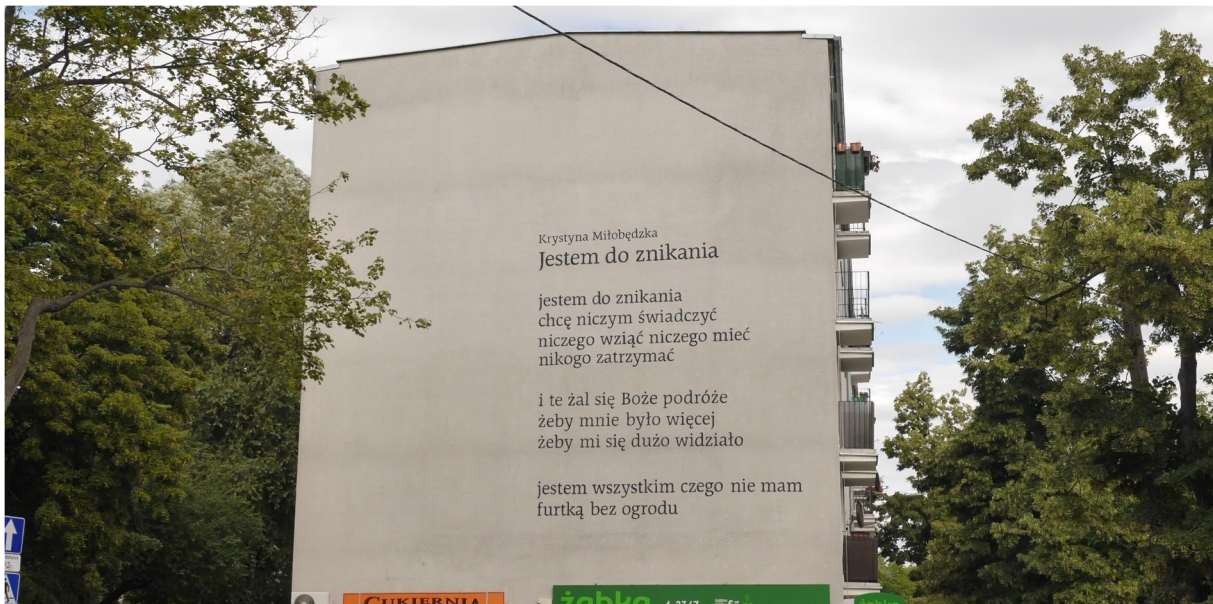 Krystyna Miłobędzka
Jestem do znikania
jestem do znikania
chcę niczym świadczyć
niczego wziąć niczego mieć
nikogo zatrzymać
i te żal się Boże podróże
żeby mnie było więcej
żeby mi się dużo widziało
jestem wszystkim czego nie mam
furtką bez ogrodu
CUKIERNIA
żabka
żabka